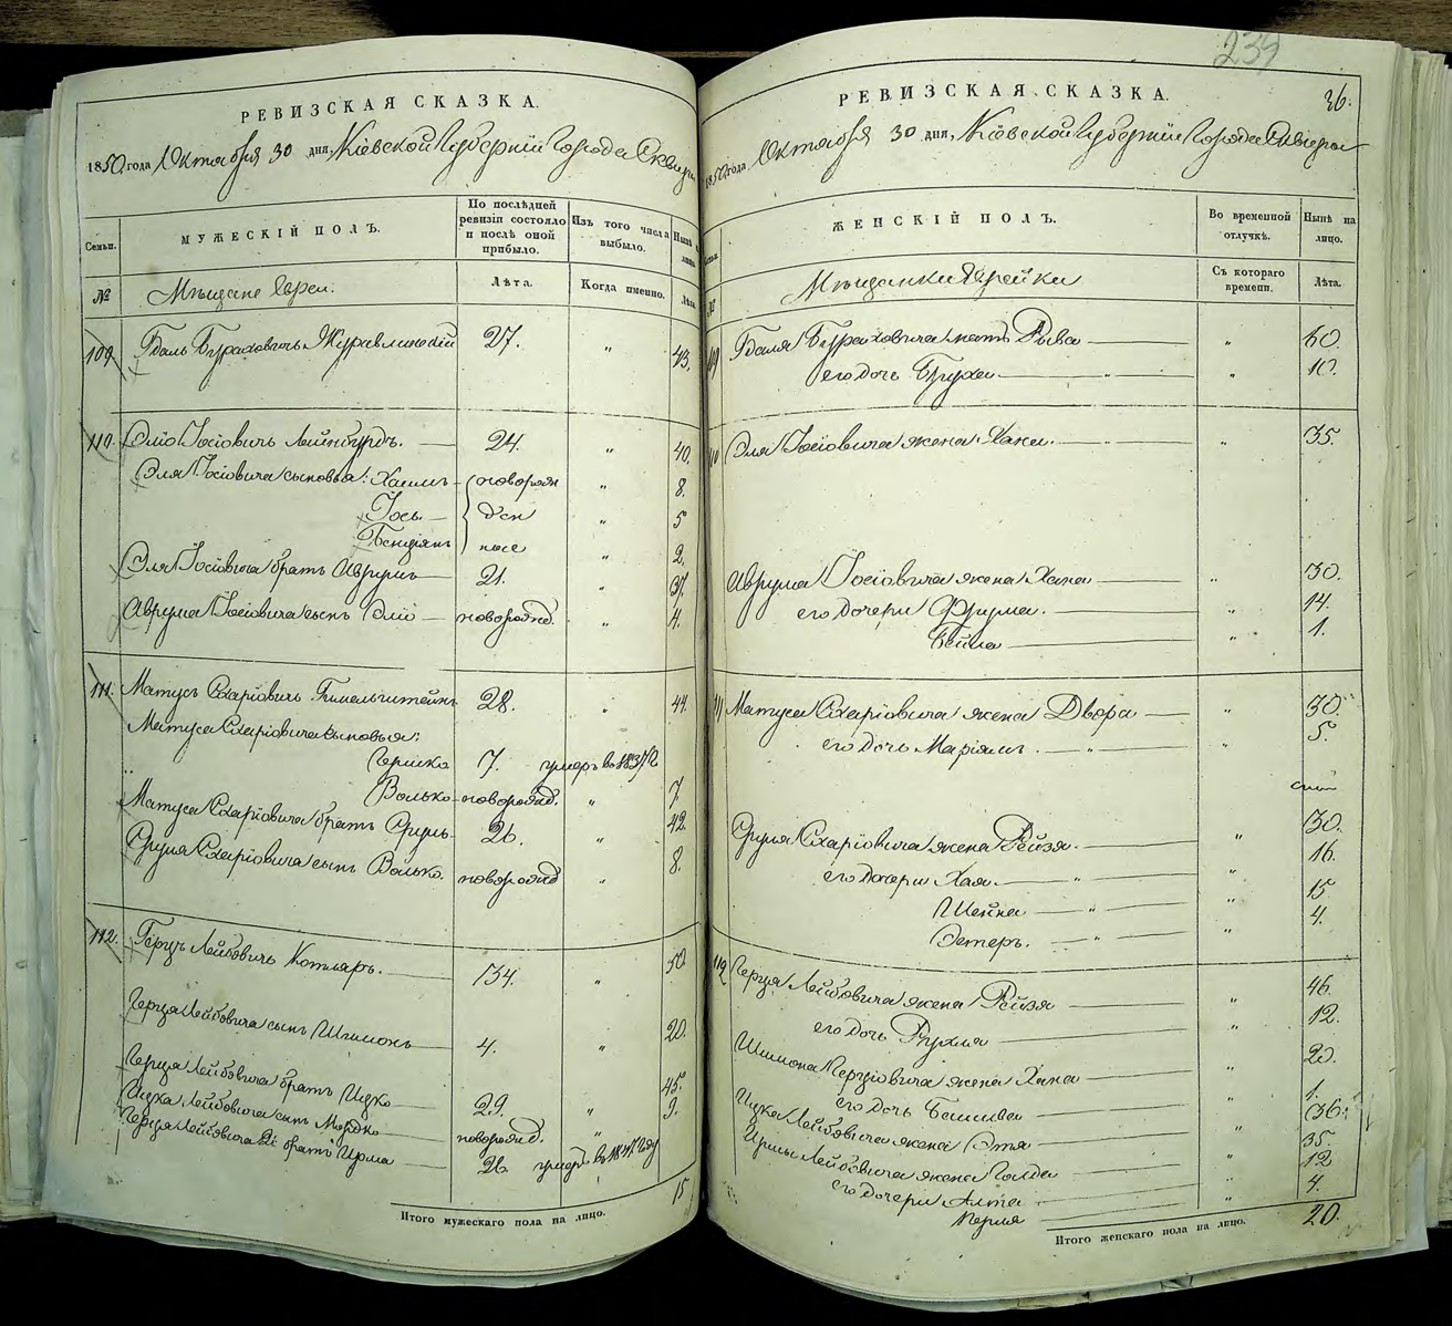 РЕВИЗСКАЯ СКАЗКА.
1850 года Октября 30 дня, Кіевской Губерніи Города Сквиры
Семьи.
МУЖЕСКІЙ ПОЛЪ.
По послѣдней ревизіи состояло и послѣ оной прибыло.
Изъ того числа выбыло.
Нынѣ на лицо.
№
Мѣщане Евреи.
Лѣта.
Когда именно.
Лѣта.
109. Гдаль Бураховичъ 27. " 43.
110. Эліо Іосіовичъ 24. " 40.
Эля Іосіовича сыновья: Хаимъ новорож " 8.
Іось ден " 5
Бенціянъ ные " 2.
Эля Іосіовича братъ Аврумъ 21. " 37.
Аврума Іосіовича сынъ Эліо новорожд. " 4.
111. Матусъ Схаріовичъ Гимельштейнъ 28. " 44.
Матуса Схаріовича сыновья:
Гершко 7. умеръ въ
Волько новорожд. " 7.
Матуса Схаріовича братъ Сруль 26. " 42.
Сруля Схаріовича сынъ Волько. новорожд " 8.
112. Герцъ Лейбовичъ Котляръ. 34. " 50
Герца Лейбовича сынъ Шимонъ 4. " 20.
Герца Лейбовича братъ Ицко 29. " 45.
Ицка Лейбовича сынъ Мордко новорожд. " 9.
Герца Лейбовича 2й братъ Урма 26 умеръ въ году
Итого мужескаго пола на лицо. 15
239
36.
РЕВИЗСКАЯ СКАЗКА.
1850 года Октября 30 дня, Кіевской Губерніи Города Сквиры
ЖЕНСКІЙ ПОЛЪ.
Во временной отлучкѣ.
Нынѣ на лицо.
№
Мѣщанки Еврейки
Съ котораго времени.
Лѣта.
109 Гдаля Бураховича мать Рыва " 60.
его дочь Бруха " 10.
110 Эля Іосіовича жена Хана. " 35.
Аврума Іосіовича жена Хана " 30.
его дочери Фрума. " 14.
Бейла " 1.
111 Матуса Схаріовича жена Двора " 30.
его дочь Маріямъ. " 5.
Сруля Схаріовича жена Рейзя. " 30.
его дочери Хая. " 16.
Шейна " 15
Эстеръ. " 4.
112 Герца Лейбовича жена Рейзя " 46.
его дочь Рухля " 12.
Шимона Герціовича жена Хана 20.
его дочь " 1.
Ицка Лейбовича жена Этя " 36.
Урмы Лейбовича жена Голда " 35.
его дочери Алта " 12
Перля " 4.
Итого женскаго пола на лицо. 20.